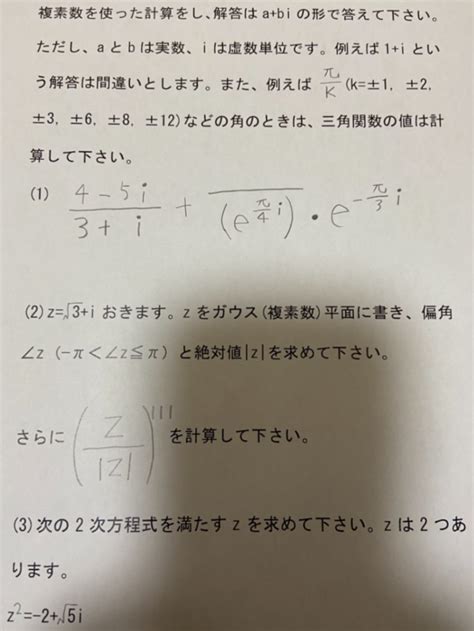 複素数を使った計算をし、解答は a+bi の形で答えて下さい。
ただし、a と b は実数、i は虚数単位です。例えば 1+i とい
う解答は間違いとします。また、例えば π/K (k=±1, ±2,
±3, ±6, ±8, ±12)などの角のときは、三角関数の値は計
算して下さい。
(1) (4-5i)/(3+i) + \overline{(e^{π/4 i})}・e^{-π/3 i}
(2) z=√3+i おきます。z をガウス(複素数)平面に書き、偏角
∠z (-π<∠z≦π) と絶対値|z|を求めて下さい。
さらに (z/|z|)^111 を計算して下さい。
(3) 次の 2 次方程式を満たす z を求めて下さい。z は 2 つあ
ります。
z^2=-2+√5i